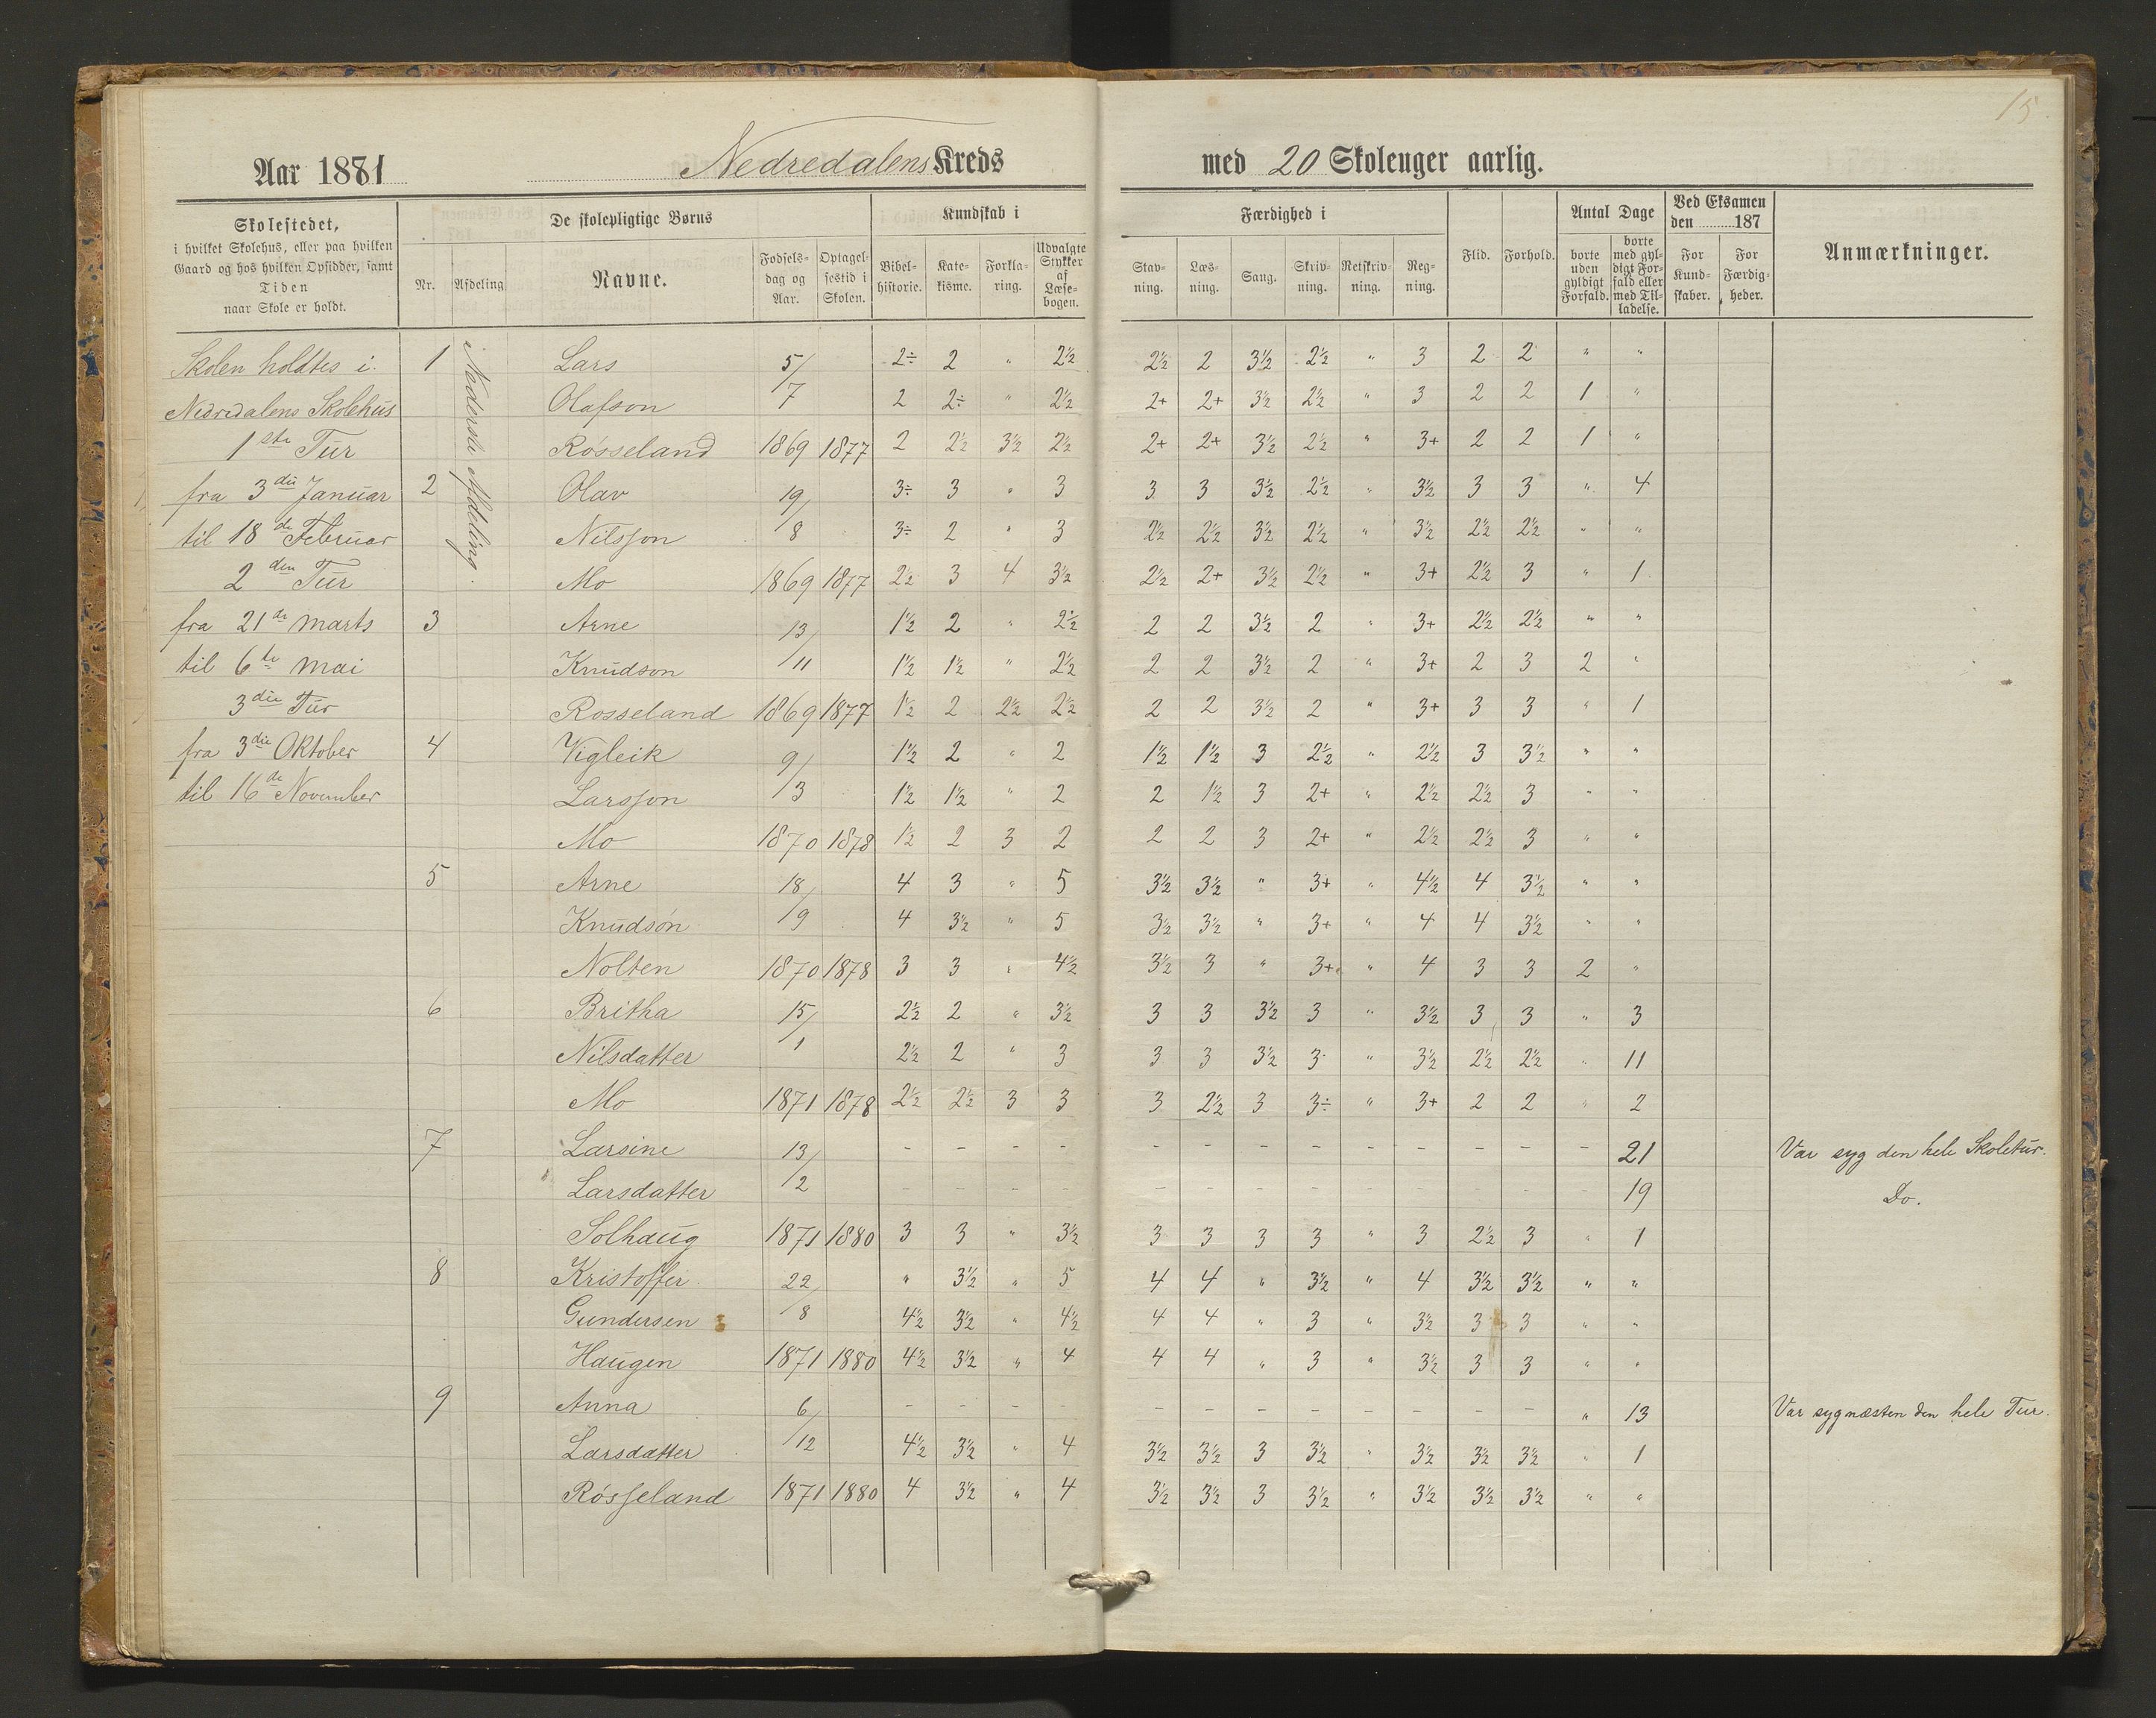 15
Aar 1881 Nedredalens Kreds med 20 Skoleuger aarlig.
Skolestedet,
i hvilket Skolehus, eller paa hvilken
Gaard og hos hvilken Opsidder, samt
Tiden
naar Skole er holdt.
De skolepligtige Børns
Nr. Afdeling Navne. Fødselsdag og Aar. Optagelsestid i Skolen.
Kundskab i
Bibelhistorie. Katekisme. Forklaring. Udvalgte Stykker af Læsebogen.
Færdighed i
Stavning. Læsning. Sang. Skrivning. Retskrivning. Regning.
Flid. Forhold.
Antal Dage
borte uden gyldigt Forfald. borte med gyldigt Forfald eller med Tilladelse.
Ved Eksamen den 187
For Kundskaber. For Færdigheder.
Anmærkninger.
Nederste Afdeling.
Skolen holdtes i 1 Lars 5/ 2÷ 2 " 2½ 2½ 2 3½ 2½ " 3 2 2 " "
Nedredalens Skolehus Olafson 7 2 2÷ " 2½ 2+ 2+ 3½ 2½ " 3 2 2 1 "
1ste Tur Rösseland 1869 1877 2 2½ 3½ 2½ 2+ 2+ 3½ 2½ " 3+ 2 2 1 "
fra 3die Januar 2 Olav 19/ 3÷ 3 " 3 3 3 3½ 2½ " 3½ 3 3 " 4
til 18de Februar Nilsson 8 3÷ 2 " 3 2½ 2½ 3½ 2½ " 3½ 2½ 2½ " "
2den Tur Mo 1869 1877 2½ 3 4 3½ 2½ 2+ 3½ 2½ " 3+ 2½ 3 " 1
fra 21de Marts 3 Arne 13/ 1½ 2 " 2½ 2 2 3½ 2 " 3+ 2½ 2½ " "
til 6te Mai Knudson 11 1½ 1½ " 2½ 2 2 3½ 2 " 3+ 2 3 2 "
3die Tur Rosseland 1869 1877 1½ 2 2½ 2½ 2 2 3½ 2 " 3+ 3 3 " 1
fra 3die Oktober 4 Vigleik 9/ 1½ 2 " 2 1½ 1½ 3 2½ " 2½ 3 3½ " "
til 16de November Larsson 3 1½ 1½ " 2 2 1½ 3 2+ " 2½ 2½ 3 " "
Mo 1870 1878 1½ 2 3 2 2 2 3 2+ " 2½ 2½ 3 " "
5 Arne 18/ 4 3 " 5 3½ 3½ " 3+ " 4½ 4 3½ " "
Knudsön 9 4 3½ " 5 3½ 3½ " 3+ " 4 4 3½ " "
Nolten 1870 1878 3 3 " 4½ 3½ 3 " 3+ " 4 3 3 2 "
6 Britha 15/ 2½ 2 " 3½ 3 3 3½ 3 " 3½ 3 3 " 3
Nilsdatter 1 2½ 2 " 3 3 3 3½ 3 " 3½ 2½ 2½ " 11
Mo 1871 1878 2½ 2½ 3 3 3 2½ 3 3÷ " 3+ 2 2 " 2
7 Larsine 13/ - - - - - - - - - - - - - 21 Var syg den hele Skoletur.
Larsdatter 2 - - - - - - - - - - - - - 19 Do.
Solhaug 1871 1880 3 3 " 3½ 3 3 3 3 " 3 2½ 3 " 1
8 Kristoffer 22/ " 3½ " 5 4 4 " 3½ " 4 3½ 3½ " "
Gundersen 8 4½ 3½ " 4½ 4 4 " 3 " 3½ 3 3 " "
Haugen 1871 1880 4½ 3½ " 4 4 4 " 3 " 3½ 3 3 " "
9 Anna 6/ - - - - - - - - - - - " 13 Var syg næsten den hele Tur.
Larsdatter 12 4½ 3½ " 4 3½ 3½ 3 3½ " 3½ 3½ 3½ " 1
Rösseland 1871 1880 4 3½ " 4 3½ 3½ 3 3½ " 3½ 3½ 3½ " "